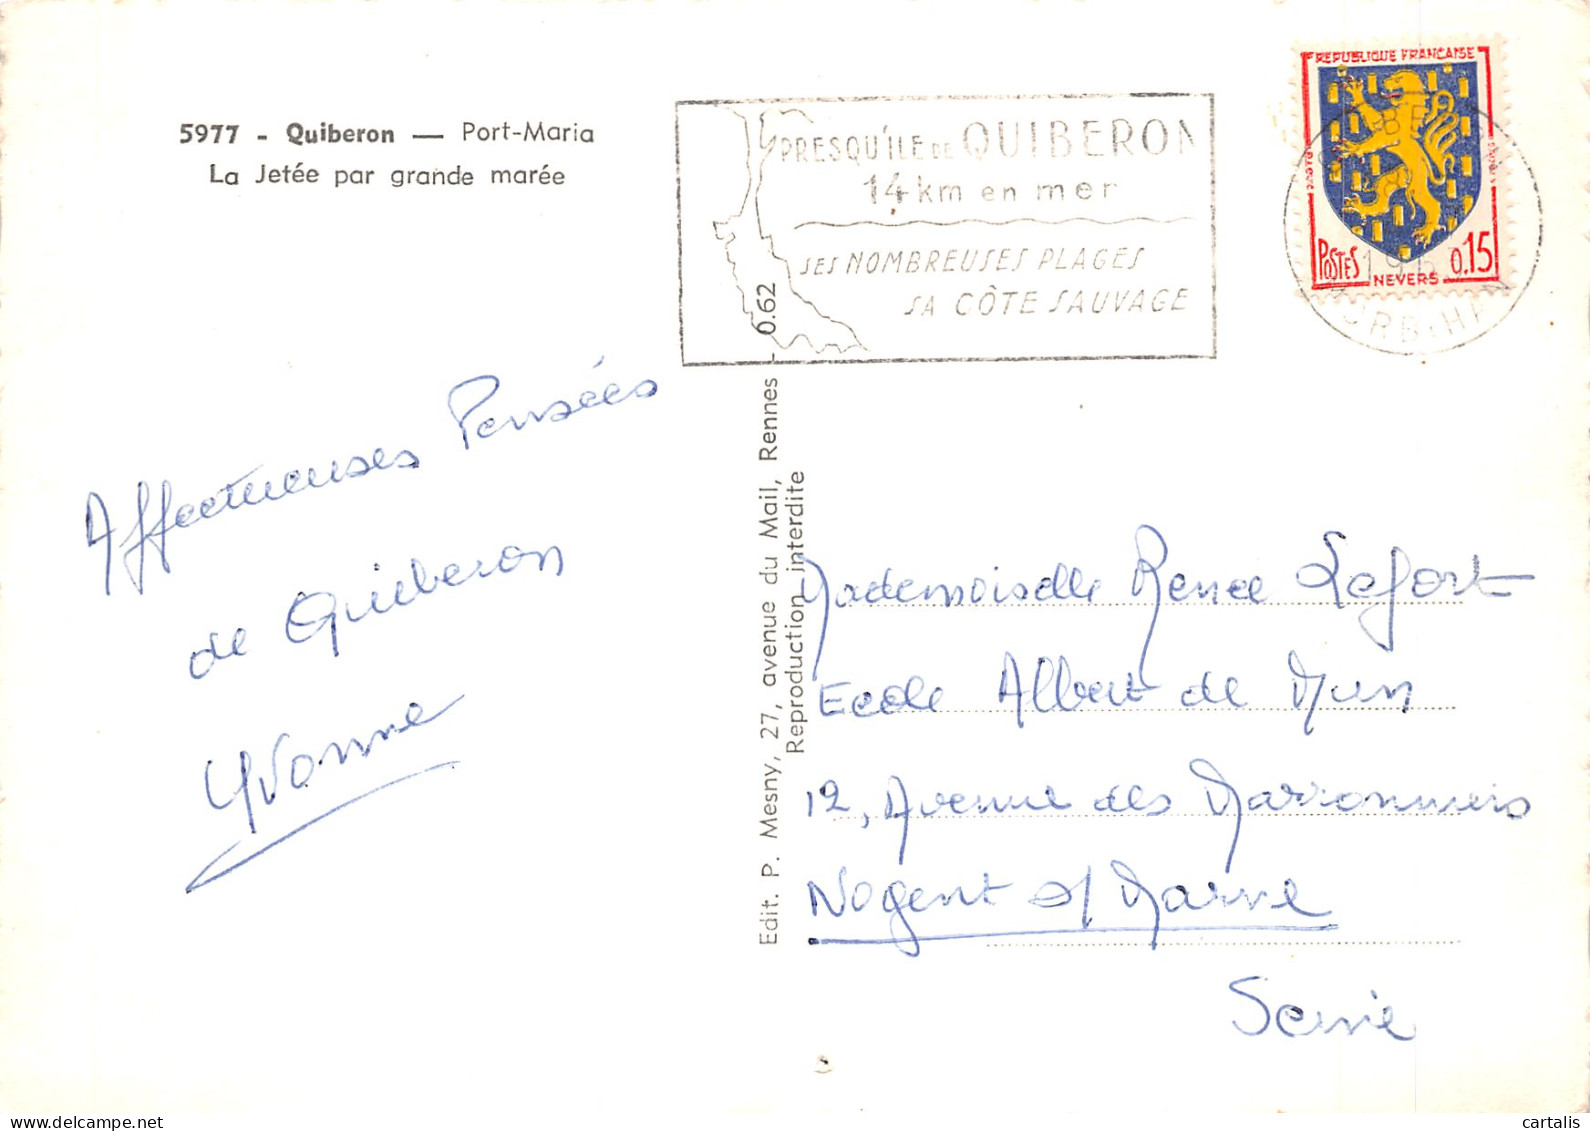 5977 - Quiberon — Port-Maria
La Jetée par grande marée
PRESQU'ÎLE DE QUIBERON
14 km en mer
SES NOMBREUSES PLAGES
SA CÔTE SAUVAGE
REPUBLIQUE FRANCAISE
POSTES 0,15
NEVERS
Affectueuses Pensées
de Quiberon
Yvonne
Edit. P. Mesny, 27, avenue du Mail, Rennes - 0.62
Reproduction interdite
Mademoiselle Renee Lefort
Ecole Albert de Mun
12, Avenue des Marronniers
Nogent s/ Marne
Seine
cartalis